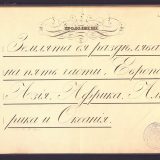 ПРОДОЛЖЕНИЕ
Землята се раздѣлява
на пять части, Европа
Азия, Африка, Аме
рика и Океания.